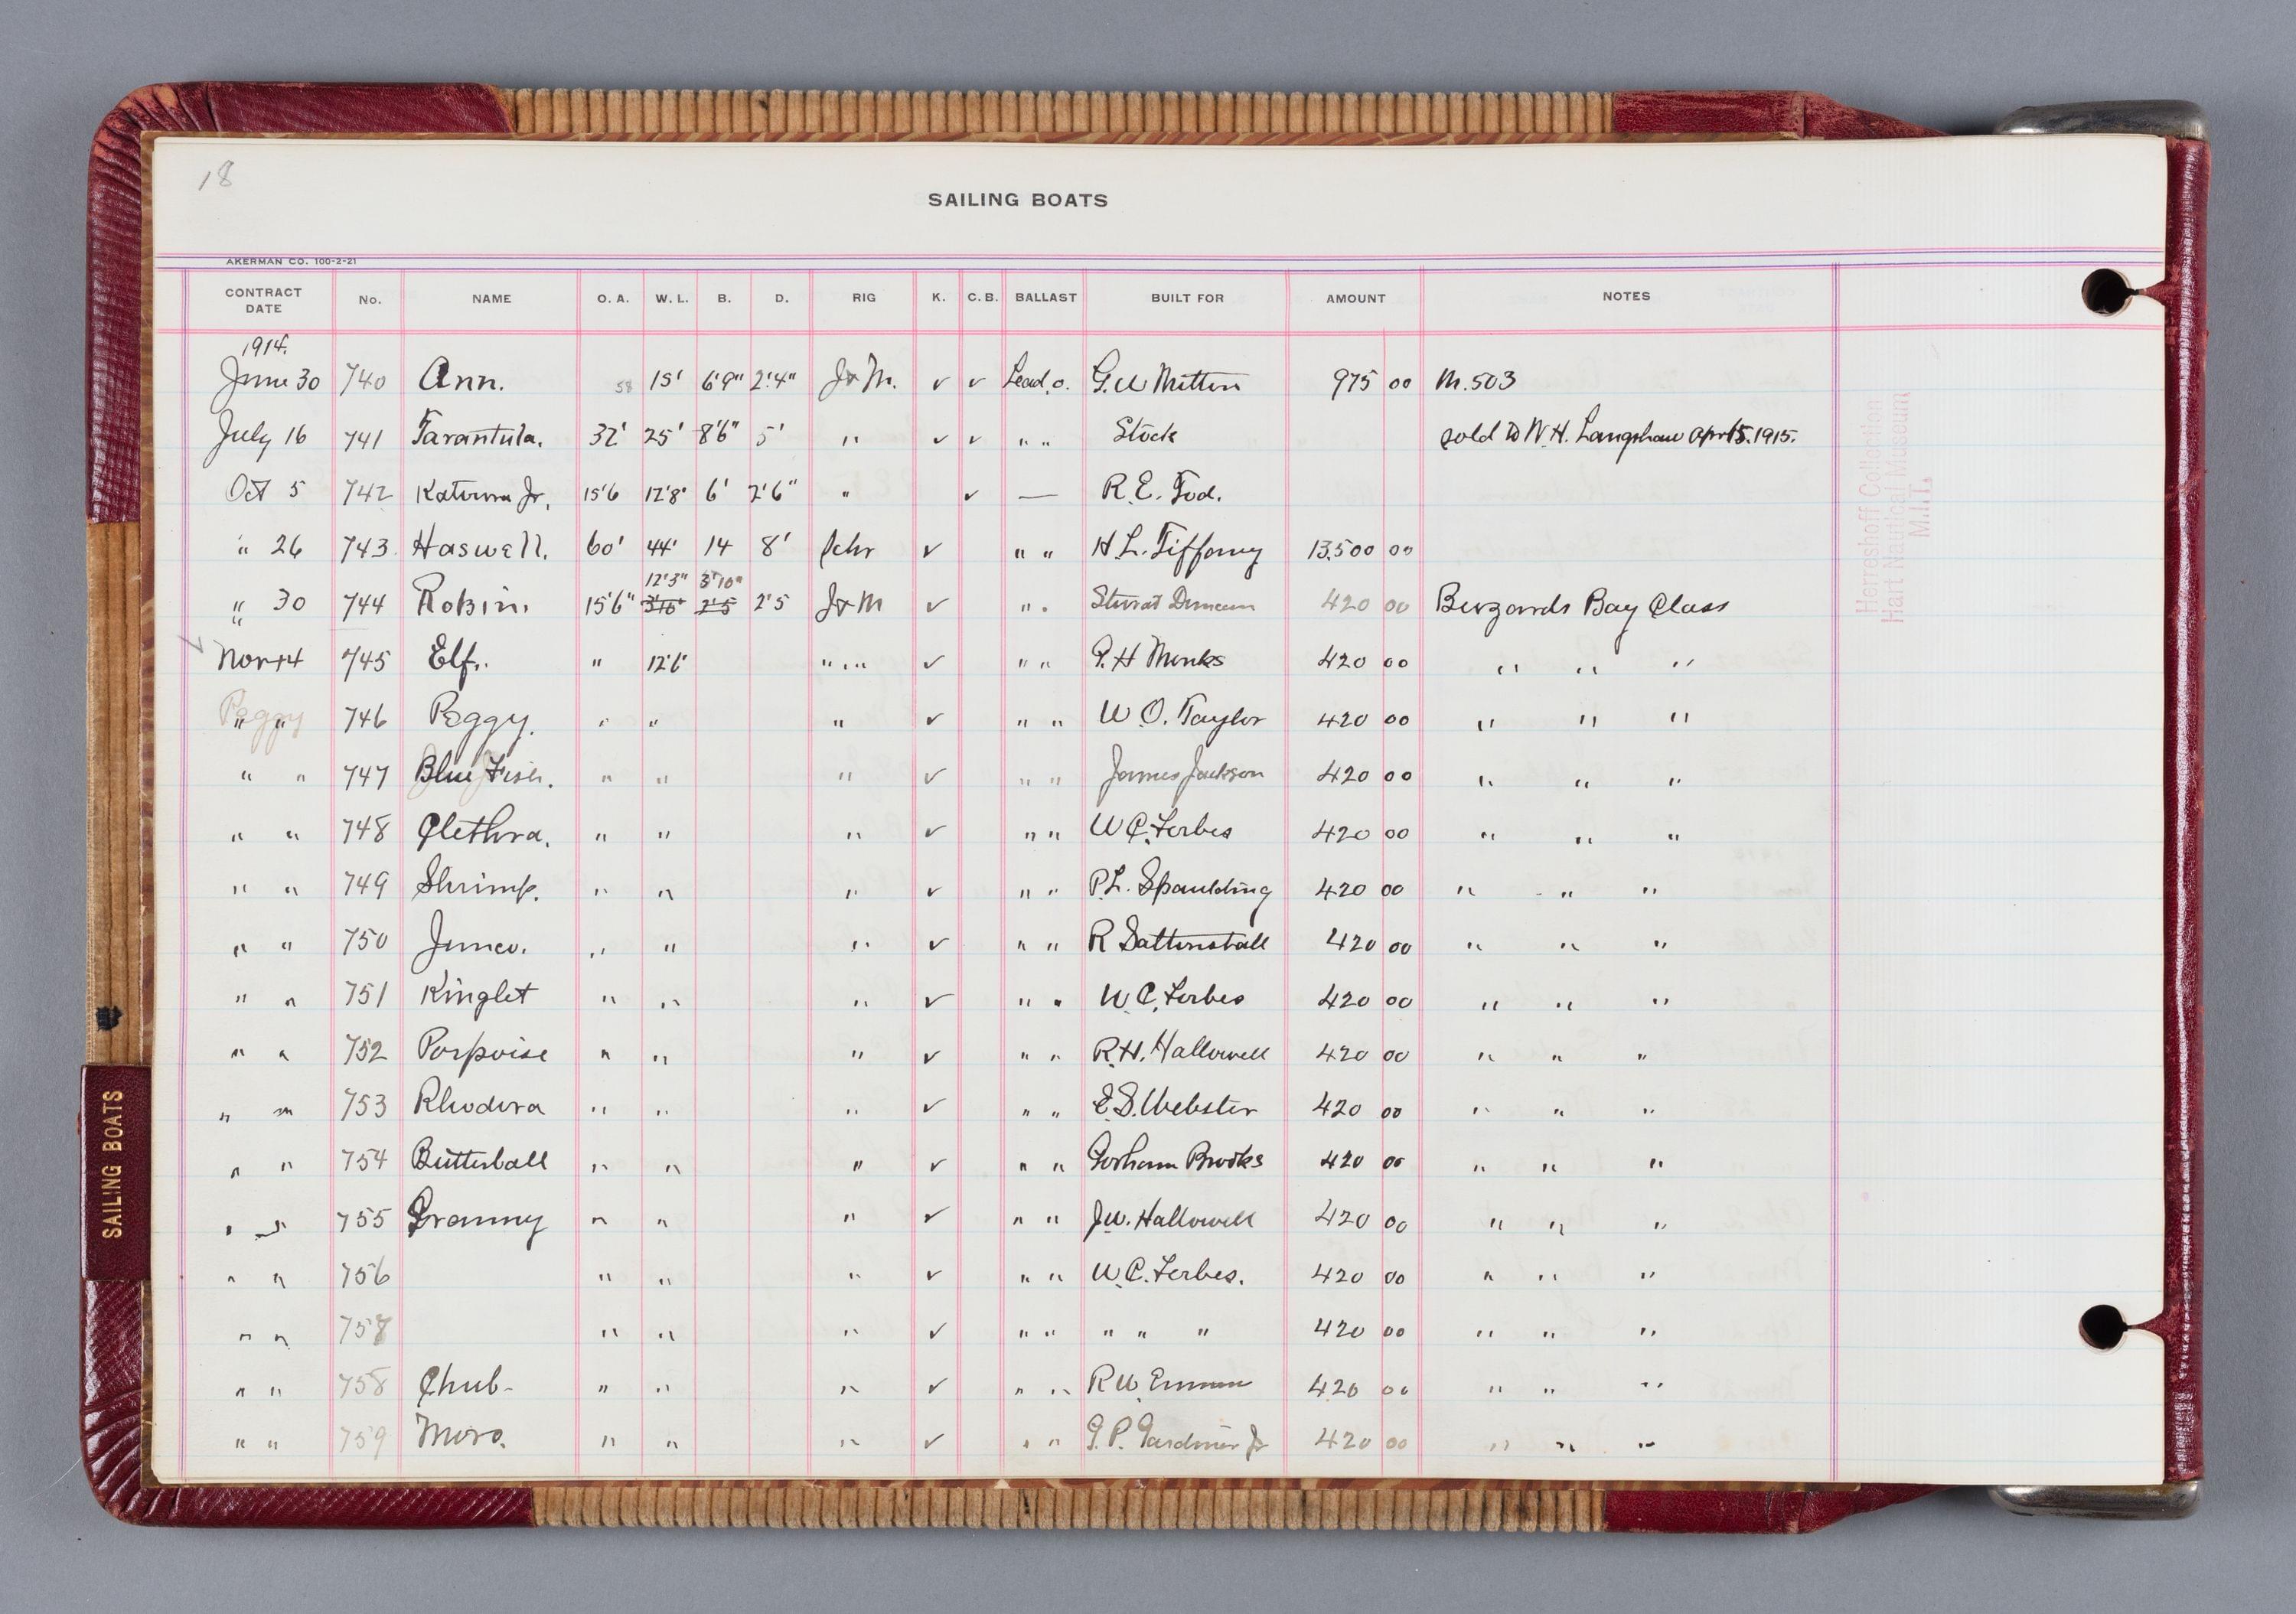 18
SAILING BOATS
AKERMAN CO. 100-2-21
CONTRACT DATE No. NAME O. A. W. L. B. D. RIG K. C. B. BALLAST BUILT FOR AMOUNT NOTES
1914.
June 30 740 Ann. 58 15' 6'9" 2'4" J & M. ✓ ✓ Lead o. G. W Mitton 975 00 M. 503
July 16 741 Tarantula. 32' 25' 8'6" 5' " ✓ ✓ " " Stock sold to W. H. Langshaw Apr 15. 1915.
Oct 5 742 Katrina Jr. 15'6 12'8" 6' 2'6" " ✓ — R. E. Tod.
" 26 743 Haswell. 60' 44' 14 8' Schr ✓ " " H L. Tiffany 13,500 00
12'3" 3'10"
" 30 744 Robin. 15'6" 2'5 2'5 J & M ✓ " " Duncan 420 00 Buzzards Bay Class
Nov 14 745 Elf. " 12'6' " " " ✓ " " G. H Monks 420 00 " " "
Peggy
" " 746 Peggy. " " " ✓ " " W. O. Taylor 420 00 " " "
" " 747 Blue Fish. " " " ✓ " " James Jackson 420 00 " " "
" " 748 Clethra. " " " ✓ " " W C. Forbes 420 00 " " "
" " 749 Shrimp. " " " ✓ " " P. L. Spaulding 420 00 " " "
" " 750 Junco. " " " ✓ " " R Saltonstall 420 00 " " "
" " 751 Kinglet " " " ✓ " " W. C. Forbes 420 00 " " "
" " 752 Porpoise " " " ✓ " " R. H. Hallowell 420 00 " " "
" " 753 Rhodora " " " ✓ " " E. S. Webster 420 00 " " "
" " 754 Butterball " " " ✓ " " Gorham Brooks 420 00 " " "
" " 755 Granny " " " ✓ " " J. W. Hallowell 420 00 " " "
" " 756 " " " ✓ " " W. C. Forbes. 420 00 " " "
" " " " " ✓ " " " " " 420 00 " " "
" " 758 Chub- " " " ✓ " " R W. Emmons 420 00 " " "
" " 759 Moro. " " " ✓ " " G. P. Gardner Jr 420 00 " " "
Herreshoff Collection
Hart Nautical Museum
M.I.T.
SAILING BOATS